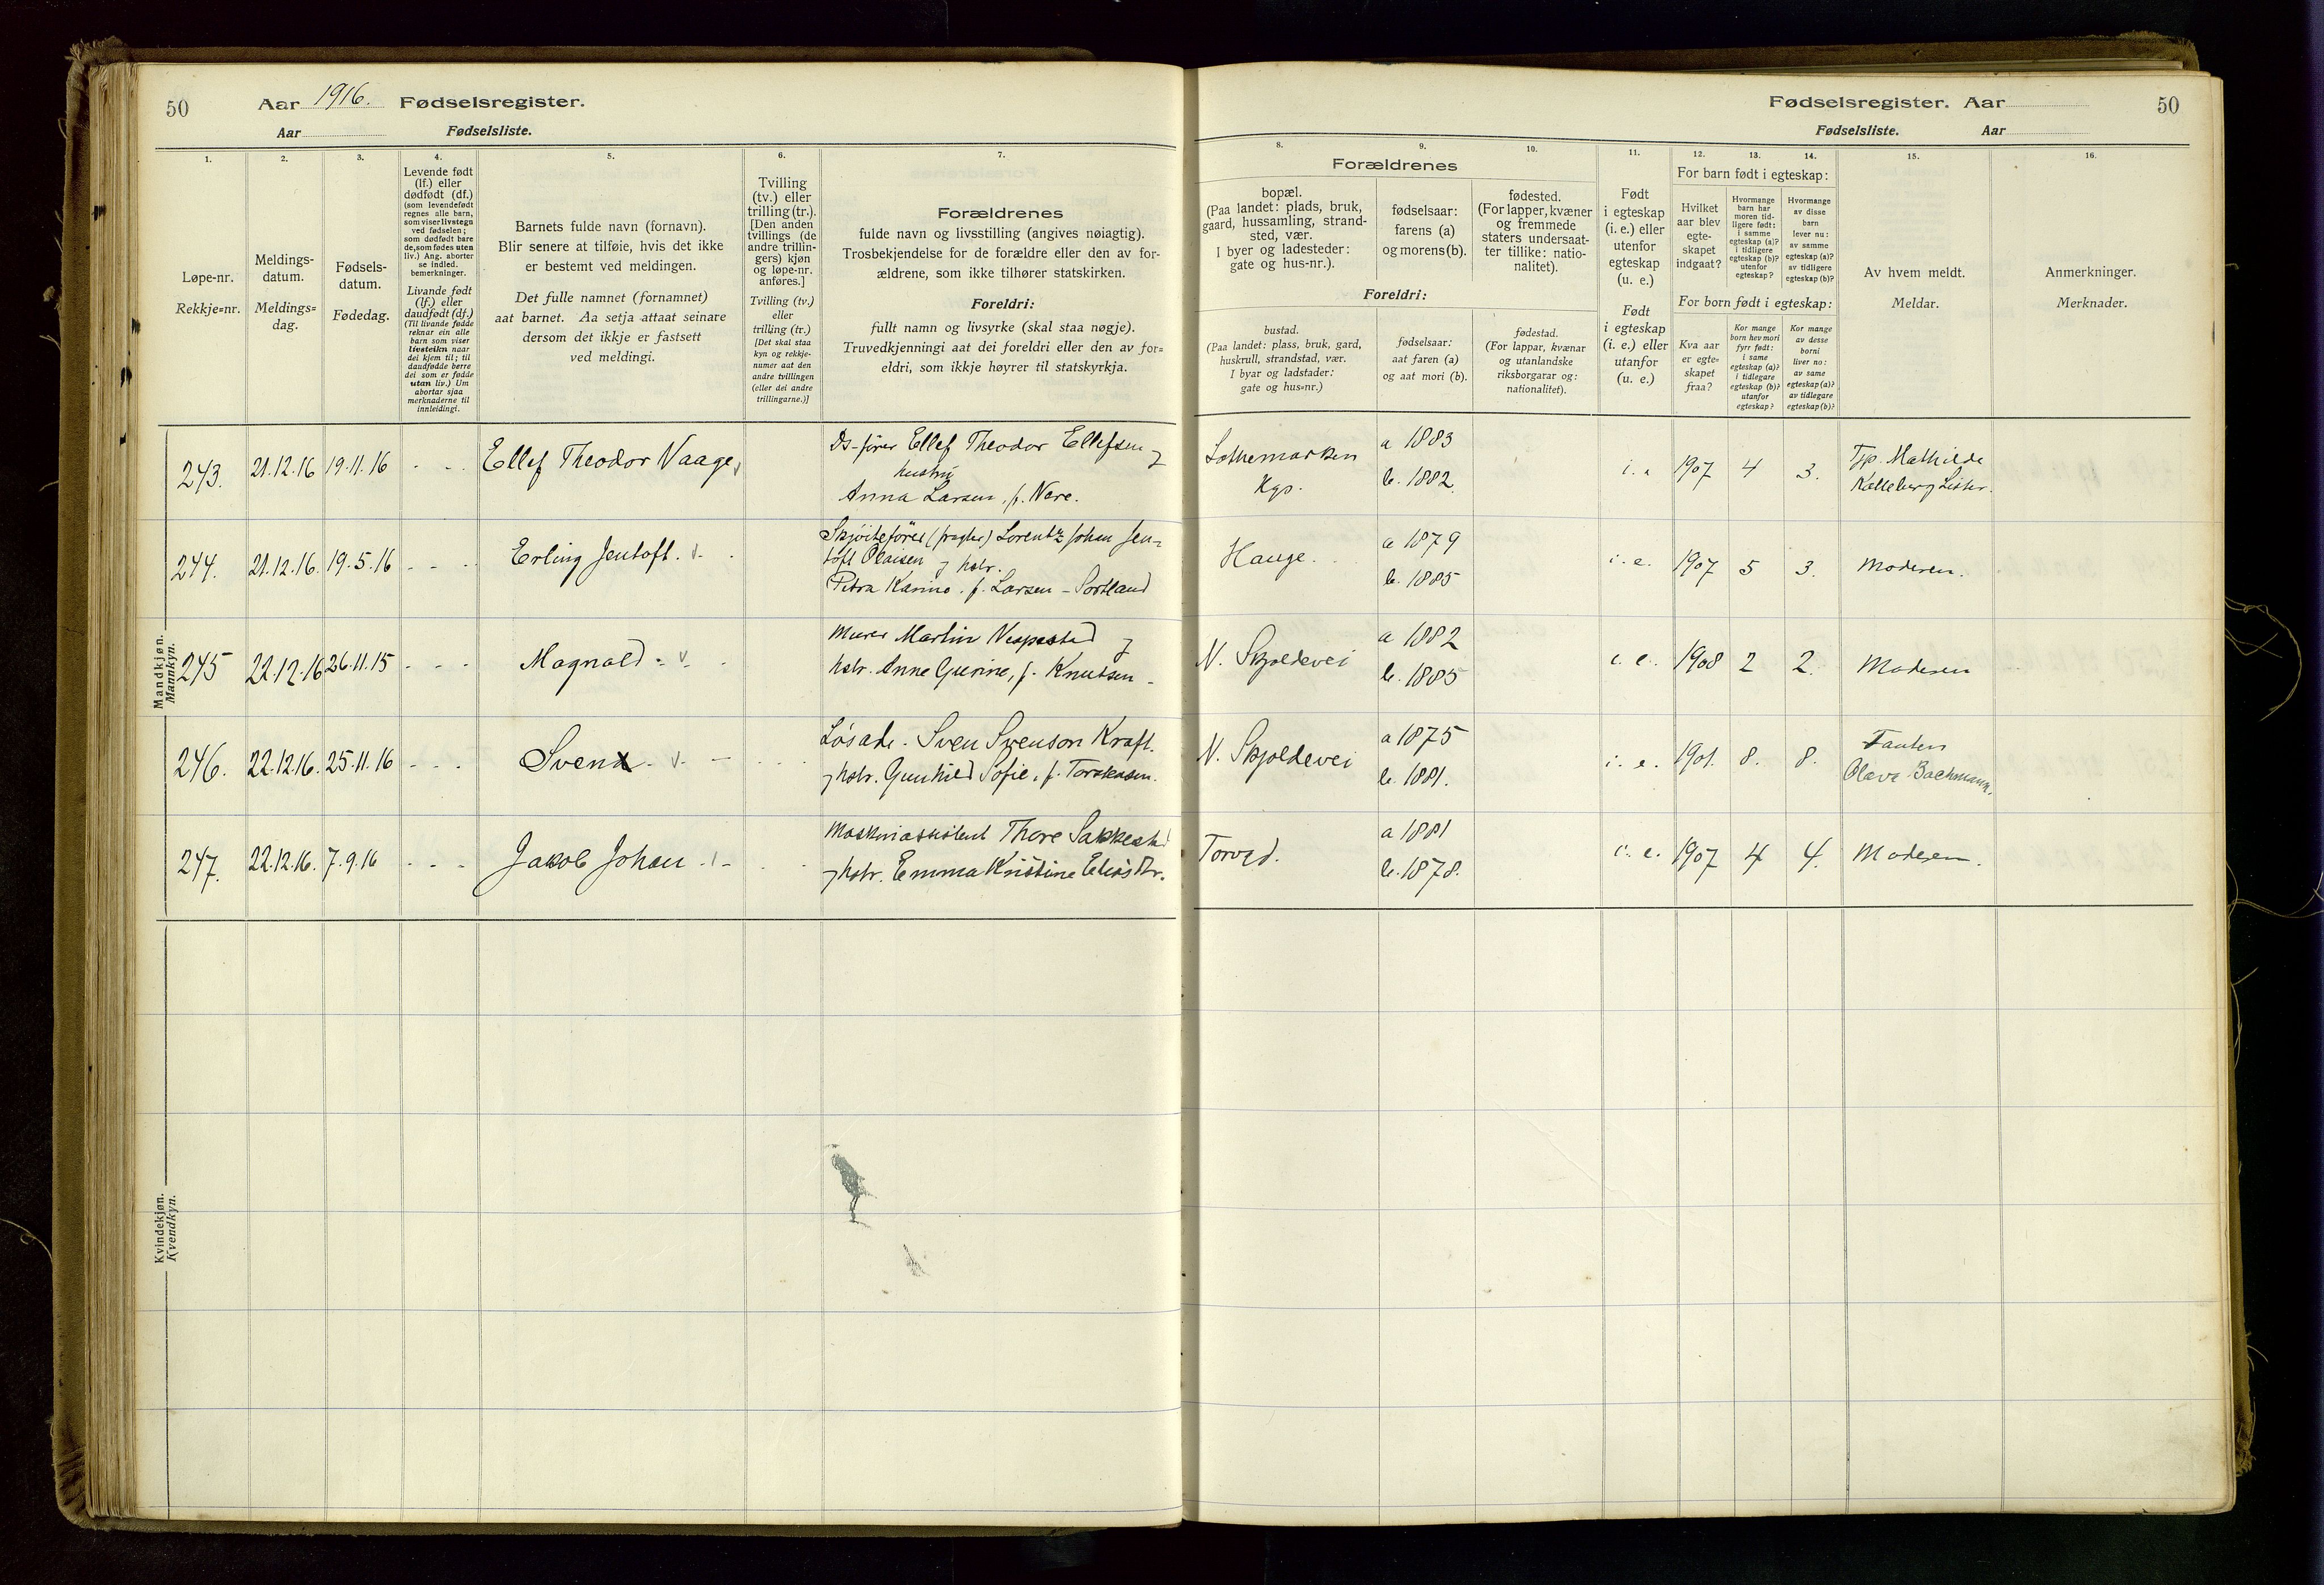 50
Aar 1916. Fødselsregister.
Aar
Fødselsliste.
1.
2.
3.
4.
5.
6.
7.
Løpe-nr.
Rekkje=nr.
Meldings-
datum.
Meldings=
dag.
Fødsels-
datum.
Fødedag.
Levende født
(lf.) eller
dødfødt (df.)
(som levendefødt
regnes alle barn,
som viser livstegn
ved fødselen;
som dødfødt bare
de, som fødes uten
liv.) Ang. aborter
se indled.
bemerkninger.
Livande født
(lf.) eller
daudfødt (df.)
(Til livande fødde
reknar ein alle
barn som viser
livsteikn naar
dei kjem til; til
daudfødde berre
dei som er fødde
utan liv.) Um
abortar sjaa
merknaderne til
innleidingi.
Barnets fulde navn (fornavn).
Blir senere at tilføie, hvis det ikke
er bestemt ved meldingen.
Det fulle namnet (fornamnet)
aat barnet. Aa setja attaat seinare
dersom det ikkje er fastsett
ved meldingi.
Tvilling
(tv.) eller
trilling (tr.).
[Den anden
tvillings (de
andre trillin-
gers) kjøn
og løpe-nr.
anføres.]
Tvilling (tv.)
eller
trilling (tr.)
[Det skal staa
kyn og rekkje-
numer aat den
andre tvillingen
(eller dei andre
trillingarne.)]
Forældrenes
fulde navn og livsstilling (angives nøiagtig).
Trosbekjendelse for de forældre eller den av for-
ældrene, som ikke tilhører statskirken.
Foreldri:
fullt namn og livsyrke (skal staa nøgje).
Truvedkjenningi aat dei foreldri eller den av for=
eldri, som ikkje høyrer til statskyrkja.
Mandkjøn.
Mannkyn.
243.
21.12.16
19.11.16
Ellef Theodor Vaage
Ds-fører Ellef Theodor Ellefsen
hustru
Anna Larsen, f. Nere.
244.
21.12.16.
19.5.16
Erling Jentoft.
Skjöiteförer (fragter) Lorentz Johan Jen=
toft Olaisen og hstr.
Petra Karine. f. Larsen - Sortland
245
22.12.16
26.11.15
Magnald
Murer Martin
hstr. Anne Gurine, f. Knutsen
246.
22.12.16.
25.11.16
Sven
Løsarb. Sven Svenson Kraft.
hstr. Gunhild Sofie, f. Torkelsen.
247.
22.12.16.
7.9.16
Jakob Johan
Maskinassistent Thore Sakkestad
hstr. Emma Kristine
Kvindekjøn.
Kvendkyn.
Fødselsregister. Aar
50
Fødselsliste.
Aar
8.
9.
10.
11.
12.
13.
14.
15.
16.
Forældrenes
bopæl.
(Paa landet: plads, bruk,
gaard, hussamling, strand-
sted, vær.
I byer og ladesteder:
gate og hus-nr.).
fødselsaar:
farens (a)
og morens (b).
fødested.
(For lapper, kvæner
og fremmede
staters undersaat-
ter tillike: natio-
nalitet).
Foreldri:
bustad.
(Paa landet: plass, bruk, gard,
huskrull, strandstad, vær.
I byar og ladstader:
gate og hus=nr.)
fødselsaar:
aat faren (a)
og aat mori (b).
fødestad.
(For lappar, kvænar
og utanlandske
riksborgarar og:
nationalitet).
Født
i egteskap
(i. e.) eller
utenfor
egteskap
(u. e.)
Født
i egteskap
(i. e.) eller
utanfor
(u. e.)
For barn født i egteskap:
Hvilket
aar blev
egte-
skapet
indgaat?
Hvormange
barn har
moren tid-
ligere født:
i samme
egteskap (a)?
i tidligere
egteskap (b)?
utenfor
egteskap?
Hvormange
av disse
barn
lever nu:
av samme
egteskap (a)?
av tidligere
egteskap (b)?
For born født i egteskap:
Kva aar
er egte=
skapet
fraa?
Kor mange
born hev mori
fyrr født:
i same
egteskap (a)?
i tidlegare
egteskap (b)?
utanfor
egteskap?
Kor mange
av desse
borni
liver no:
av same
egteskap (a)?
av tidlegare
egteskap (b)?
Av hvem meldt.
Meldar.
Anmerkninger.
Merknader.
Lothemarken
Kgp.
a 1883
b. 1882.
1907
4
3.
Mathilde
Kalleberg
Hauge.
a 1879
b. 1885
i. e.
1907
5
3.
Moderen.
N. Skjoldevei
a 1882
b. 1885
i. e.
1908
2
2.
Moderen
N. Skjoldevei
a 1875
b. 1881.
i. e.
1901.
8.
8.
Tanten
Olava Bachmann.
Torved.
a 1881
b. 1878.
i. e.
1907
4
4.
Moderen.